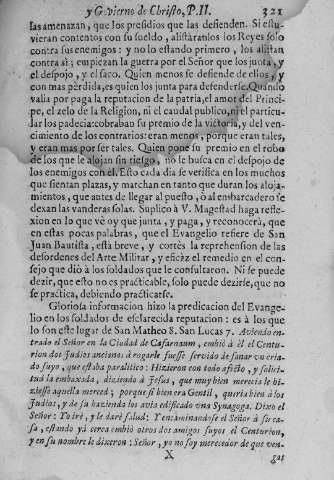 y Govierno de Christo, P. II. 321
las amenazan, que los presidios que las defienden. Si estu-
vieran contentos con su sueldo, alistáranlos los Reyes solo
contra sus enemigos: y no lo estando primero, los alistan
contra sì; empiezan la guerra por el Señor que los junta, y
el despojo, y el saco. Quien menos se defiende de ellos, y
con mas pérdida, es quien los junta para defenderse. Quando
valia por paga la reputacion de la patria, el amor del Princi-
pe, el zelo de la Religion, ni el caudal publico, ni el particu-
lar los padecia: cobraban su premio de la victoria, y del ven-
cimiento de los contrarios: eran menos, porque eran tales,
y eran mas por ser tales. Quien pone su premio en el robo
de los que le alojan sin riesgo, no le busca en el despojo de
los enemigos con èl. Esto cada dia se verifica en los muchos
que sientan plazas, y marchan en tanto que duran los aloja-
mientos, que antes de llegar al puesto, ò al embarcadero se
dexan las vanderas solas. Suplico à V. Magestad haga refle-
xion en lo que vè oy que junta, y paga, y reconocerá, que
en estas pocas palabras, que el Evangelio refiere de San
Juan Bautista, està breve, y cortès la reprehension de las
desordenes del Arte Militar, y eficàz el remedio en el con-
sejo que diò à los soldados que le consultaron. Ni se puede
dezir, que esto no es practicable, solo puede dezirse, que no
se practica, debiendo practicarse.
Gloriosa informacion hizo la predicacion del Evange-
lio en los soldados de esclarecida reputacion: es à los que
lo son este lugar de San Matheo 8. San Lucas 7. Aviendo en-
trado el Señor en la Ciudad de Cafarnaum, embió à él el Centu-
rion dos Judios ancianos à rogarle fuesse servido de sanar un cria-
do suyo, que estaba paralitico: Hizieron con todo afecto, y solici-
tud la embaxada, diziendo à Jesus, que muy bien merecia le hi-
ziesse aquella merced; porque si bien era Gentil, queria bien à los
Judios, y de su hazienda los avia edificado una Synagoga. Dixo el
Señor: Yo iré, y le daré salud: Y encaminandose el Señor à su ca-
sa, estando yá cerca embió otros dos amigos suyos el Centurion,
y en su nombre le dixeron: Señor, yo no soy merecedor de que ven-
X gas